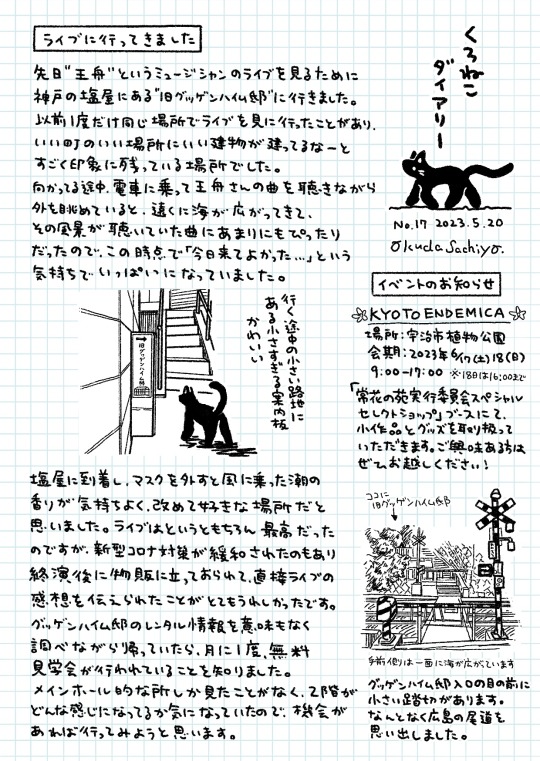 ライブに行ってきました
先日"王舟"というミュージシャンのライブを見るために
神戸の塩屋にある"旧グッゲンハイム邸"に行きました。
以前1度だけ同じ場所でライブを見に行ったことがあり、
いい町のいい場所にいい建物が建ってるなーと
すごく印象に残っている場所でした。
向かってる途中、電車に乗って王舟さんの曲を聴きながら
外を眺めていると、遠くに海が広がってきて、
その風景が聴いていた曲にあまりにもぴったり
だったので、この時点で「今日来てよかった…」という
気持ちでいっぱいになっていました。
行く途中の小さい路地に
ある小さすぎる案内板
かわいい
→旧グッゲンハイム邸
塩屋に到着し、マスクを外すと風に乗った潮の
香りが気持ちよく、改めて好きな場所だと
思いました。ライブはというともちろん最高だった
のですが、新型コロナ対策が緩和されたのもあり
終演後に物販に立っておられて、直接ライブの
感想を伝えられたことがとてもうれしかったです。
グッゲンハイム邸のレンタル情報を意味もなく
調べながら帰っていたら、月に1度、無料
見学会が行われていることを知りました。
メインホール的な所しか見たことがなく、2階が
どんな感じになってるか気になっていたので、機会が
あれば行ってみようと思います。
くろねこ
ダイアリー
No.17 2023.5.20
Okuda Sachiyo.
イベントのお知らせ
KYOTO ENDEMICA
場所:宇治市植物公園
会期:2023年6/17(土)18(日)
9:00-17:00 ※18日は16:00まで
「常花の苑実行委員会スペシャル
セレクトショップ」ブースにて、
小作品とグッズを取り扱って
いただきます。ご興味ある方は
ぜひお越しください!
ココに
旧グッゲンハイム邸
手前側は一面に海が広がっています
グッゲンハイム邸入口の目の前に
小さい踏切があります。
なんとなく広島の尾道を
思い出しました。